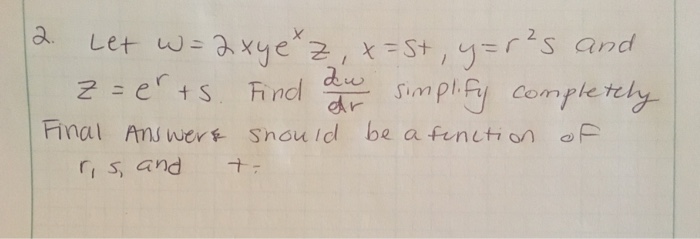 2. Let w = 2xyeˣz, x = st, y = r²s and
z = eʳ + s. Find ∂w/∂r simplify completely
Final Answers should be a function of
r, s, and t.